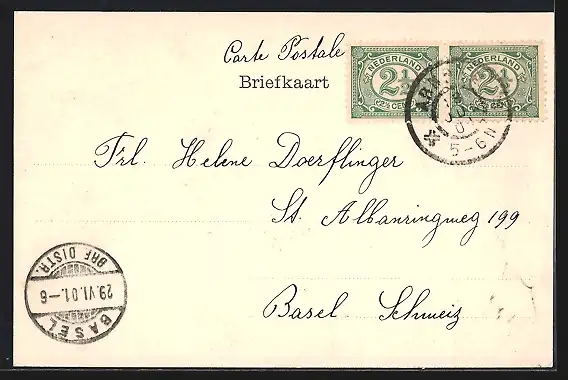 Carte Postale
Briefkaart
NEDERLAND
2½
2½ CENT
NEDERLAND
2½
5-6 N
Frl. Helene Doerflinger
St. Albanringweg 199
Basel. Schweiz
BASEL
29.VI.01.-6
BRF. DISTR.